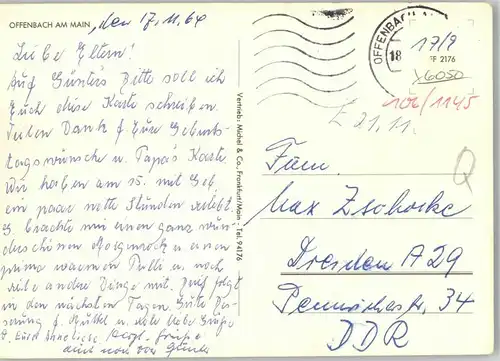 OFFENBACH AM MAIN, den 17.11.64
Liebe Eltern!
Auf Günters Bitte soll ich
Euch diese Karte schreiben.
Vielen Dank f. Eure Geburts-
tagswünsche u. Papas Karte
Wir haben am 15. mit Geb.
ein paar nette Stunden verlebt
G. brachte mir einen ganz wun-
derschönen Morgenrock u. einen
prima warmen Pulli u. noch
viele andre Dinge mit. Brief folgt
in den nächsten Tagen. Gute Bes-
serung f. Muttel u. viele liebe Grüße
Eure
Herzl. Grüße
auch von
Vertrieb: Michel & Co., Frankfurt/Main · Tel. 94176
OFFENBACH
18
17/9
FF 2176
6050
106/1145
E 21.11.
Q
Fam.
Max Zschocke
Dresden A 29
34
DDR